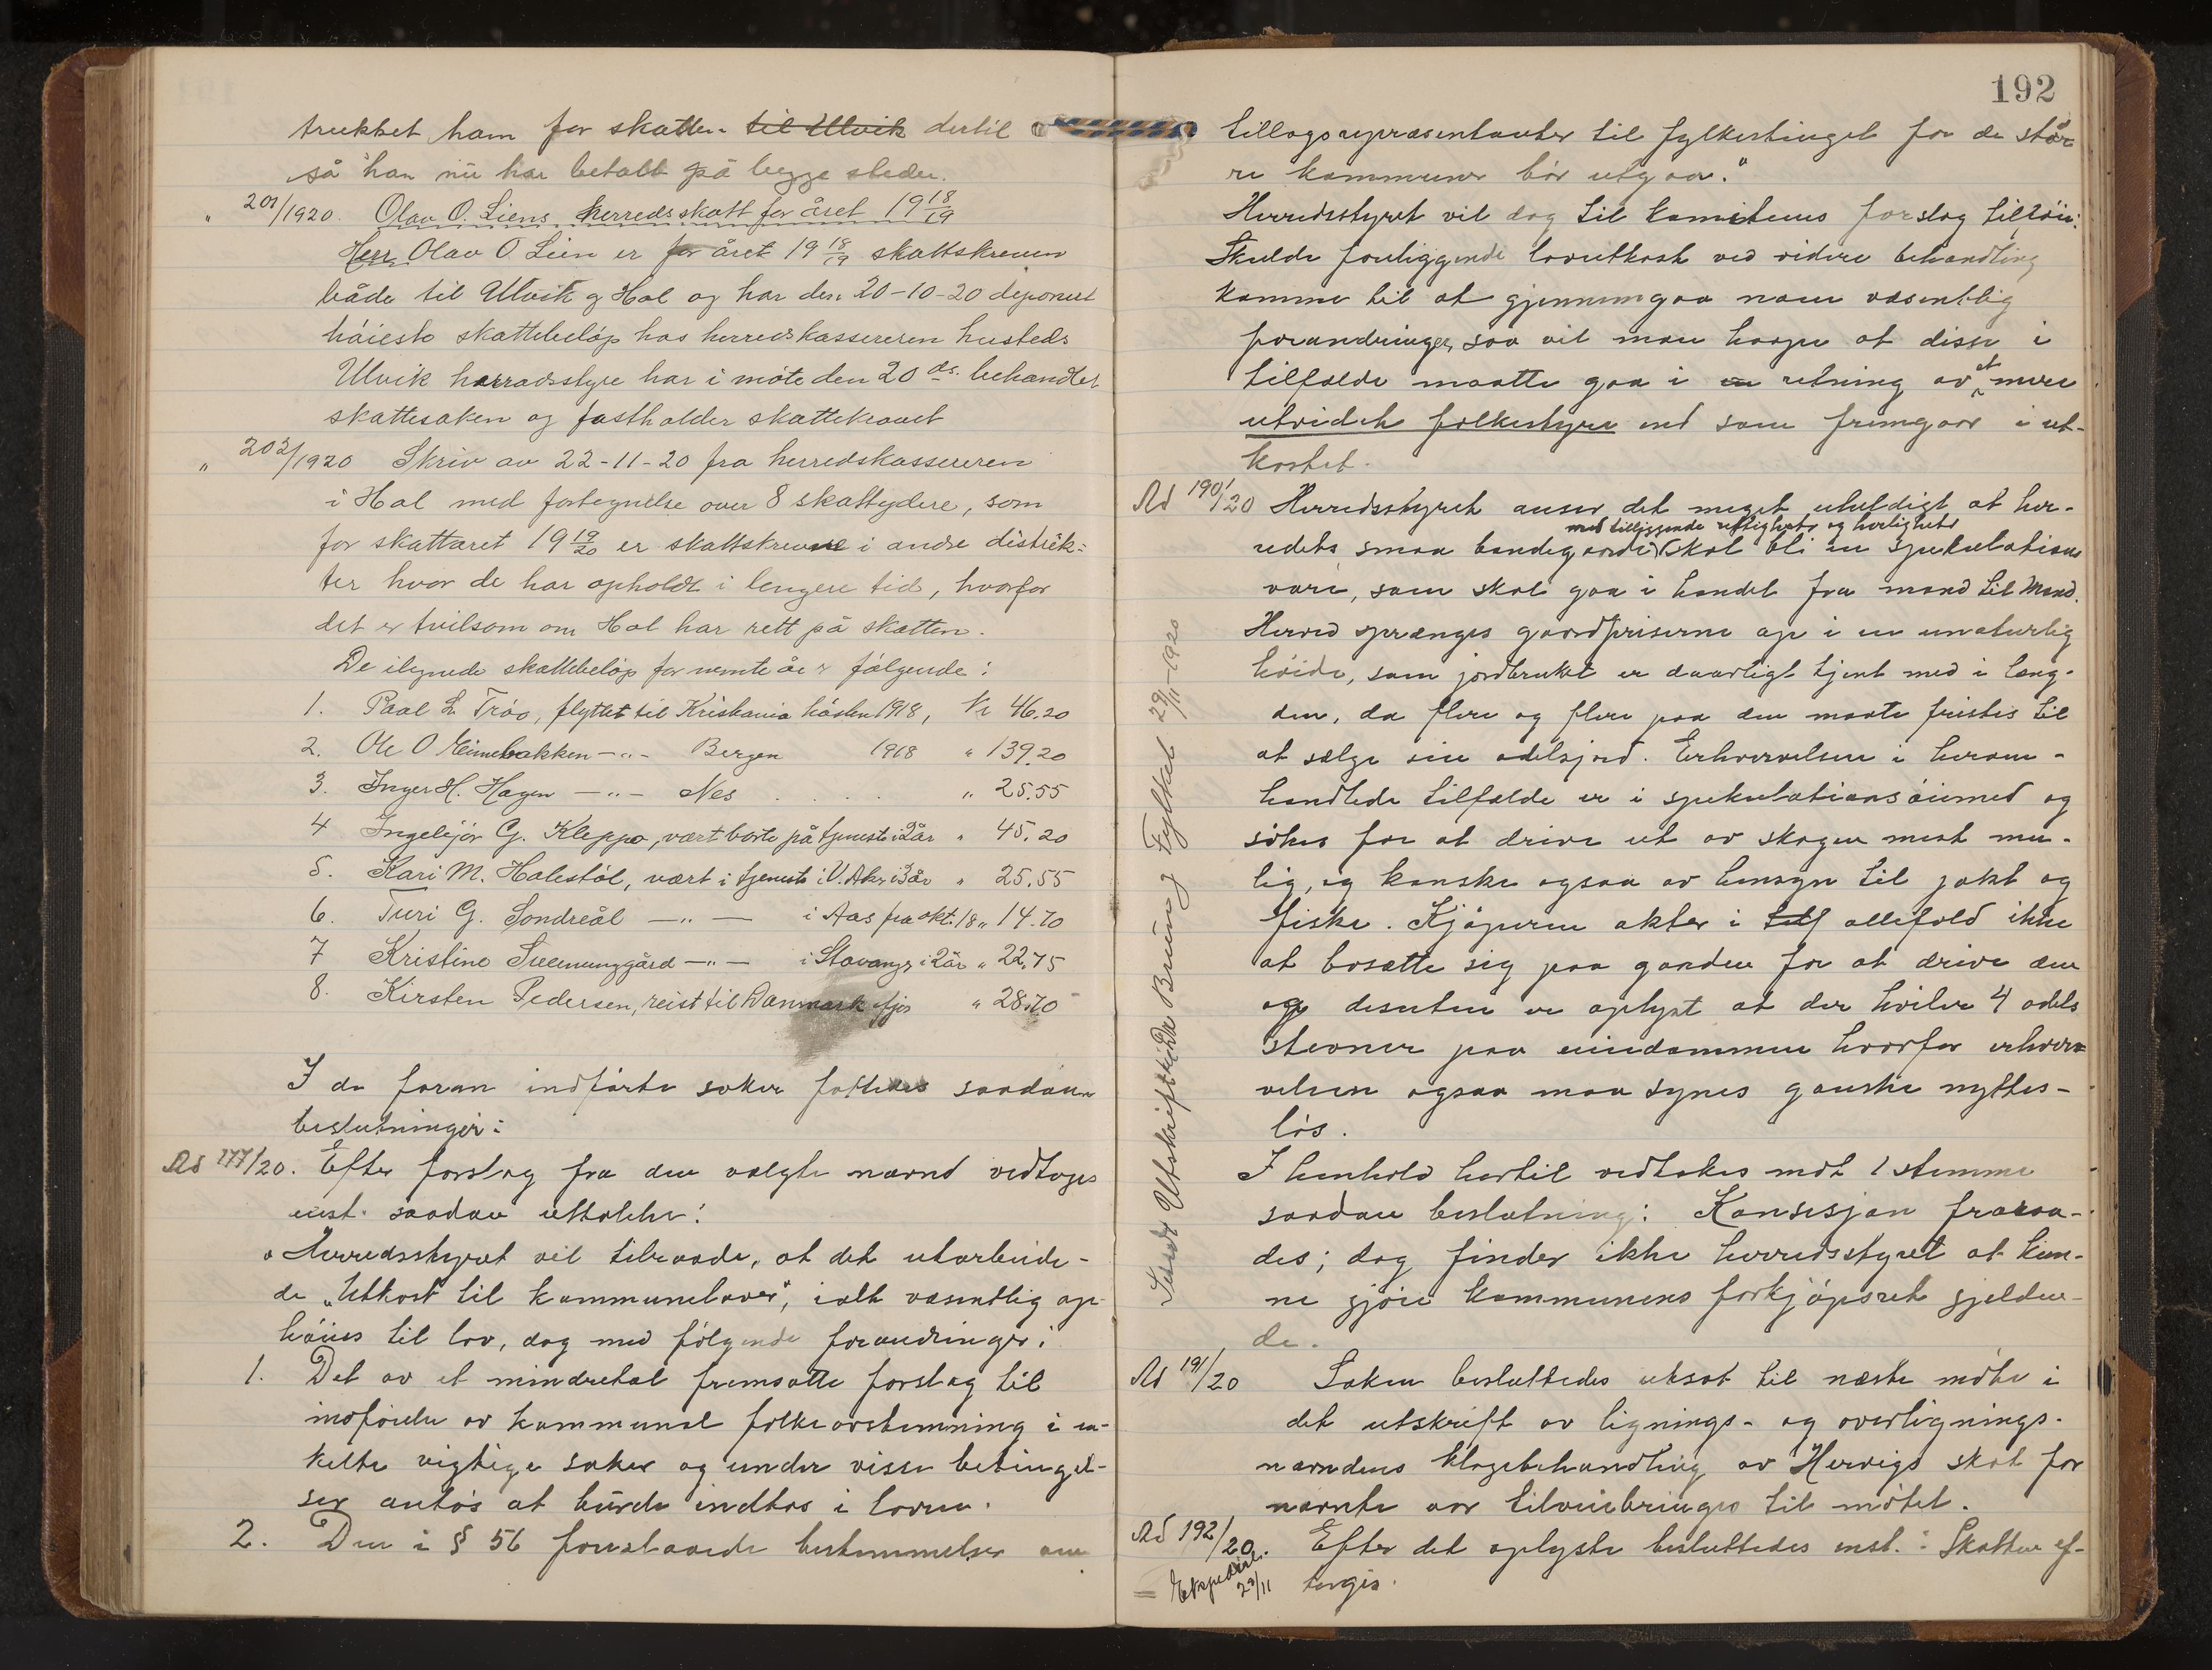 trukket ham for skatten til Ulvik dertil
så han nu har betalt på begge steder.
" 201/1920. Olav O. Liens herredsskatt for året 19 18/19
Herr Olav O. Lien er for året 19 18/19 skattskreven
både til Ulvik og Hol og har den 20-10-20 deponert
høieste skattebeløp hos herredskassereren husteds
Ulvik herradsstyre har i møte den 20 ds. behandlet
skattesaken og fastholder skattekravet
" 202/1920 Skriv av 22-11-20 fra herredskassereren
i Hol med fortegnelse over 8 skattydere, som
for skattåret 19 19/20 er skattskrevne i andre distrik-
ter hvor de har opholdt i lengere tid, hvorfor
det er tvilsom om Hol har rett på skatten.
De ilignede skattebeløp for nevnte år er følgende:
1. Paal L. Trøo, flyttet til Kristiania høsten 1918, Kr 46.20
2. Ole O Einebakken —"— Bergen 1918 " 139.20
3. Inger H. Hagen —"— Nes . . . . " 25.55
4 Ingebjør G. Kleppo, vært borte på tjeneste i 2 år " 45.20
5. Kari M. Holestøl, vært i tjeneste i V. Aker i 3 år " 25.55
6. Turi G. Sondreål —"— i Aas fra okt. 18 " 14.70
7 Kristine Sveinunggård —"— i Stavanger i 2 år " 22.75
8. Kirsten Pedersen, reist til Danmark ifjor " 28.70
I de foran indførte saker fattedes saadanne
beslutninger:
Ad 177/20. Efter forslag fra den valgte nævnd vedtoges
enst. saadan uttalelse:
"Herredsstyret vil tilraade, at det utarbeide-
de "Utkast til kommunelover", ialt væsentlig op-
høies til lov, dog med følgende forandringer:
1. Det av et mindretal fremsatte forslag til
indførelse av kommunal folkeavstemning i en-
kelte vigtige saker og under visse betingel-
ser antas at burde indtas i loven.
2. Den i § 56 foreslaaede bestemmelse om
192
tillagsrepræsentanter til fylkestinget for de stør-
re kommuner bør utgaa."
Herredsstyret vil dog til komiteens forslag tilføie:
Skulde foreliggende lovutkast ved videre behandling
komme til at gjennemgaa noen væsentlig
forandringer, saa vil man haape at disse i
tilfælde maatte gaa i en retning av et mere
utvidet folkestyre end som fremgaar i ut-
kastet.
Ad 190/20 Herredsstyret anser det meget uheldigt at her-
med tilliggende rettigheter og herligheter
redets smaa bondegaarde skal bli en spekulations
vare, som skal gaa i handel fra mand til mand.
Herved sprænges gaardpriserne op i en unaturlig
høide, som jordbruket er daarligt tjent med i læng-
den, da flere og flere paa den maate fristes til
at sælge sin odelsjord. Erhvervelsen i herom-
handlede tilfælde er i spekulationsøiemed og
søkes for at drive ut av skogen mest mu-
lig, og kanske ogsaa av hensyn til jakt og
fiske. Kjøperen akter i allefald ikke
at bosætte sig paa gaarden for at drive den
og desuten er oplyst at der hviler 4 odels
stevner paa eiendommen hvorfor erhver-
velsen ogsaa maa synes ganske nyttes-
løs.
I henhold hertil vedtokes mot 1 stemme
saadan beslutning: Konsesjon fraraa-
des; dog finder ikke herredsstyret at kun-
ne gjøre kommunens forkjøpsret gjelden-
de.
Sendt Utskrift Buskerud Fylke 29/11-1920
Ad 191/20 Saken besluttedes utsat til næste møte i
det utskrift av lignings- og overlignings-
nævndens klagebehandling av Hervigs skat for
nævnte aar tilveiebringes til møtet.
Ad 192/20. Efter det oplyste besluttedes enst.: Skatten ef-
tergis.
= Ekspedert 29/11